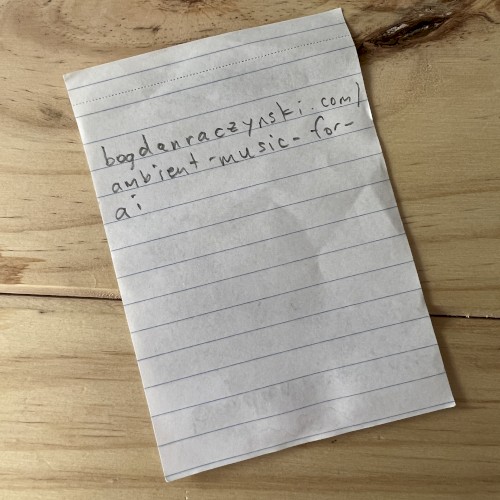 bogdanraczynski.com/
ambient-music-for-
ai